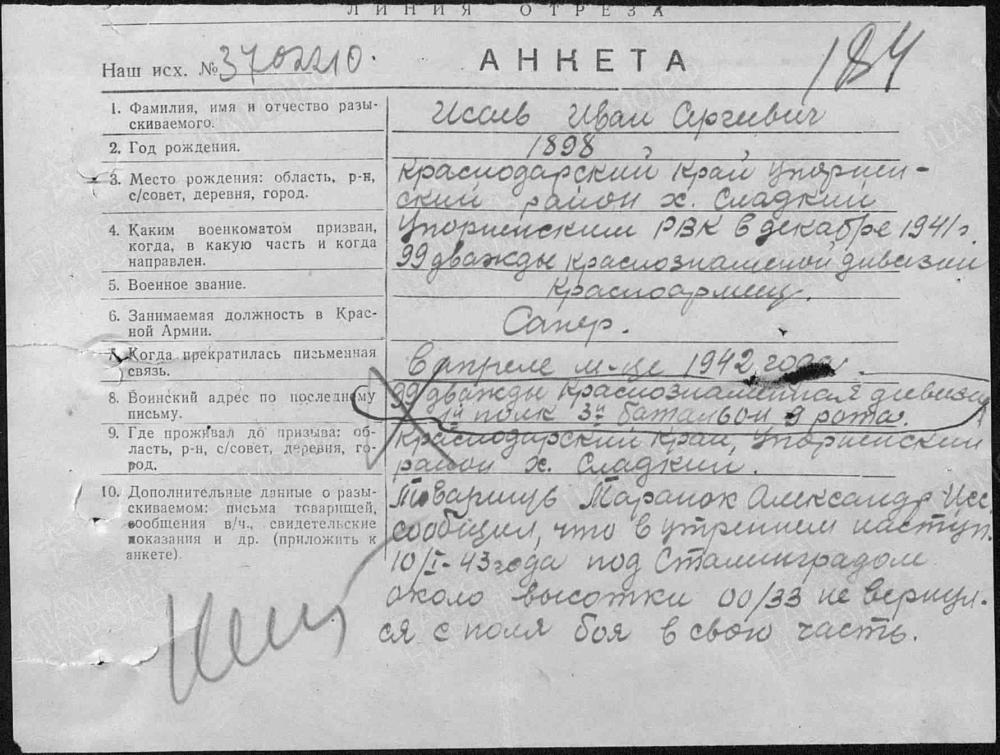 ЛИНИЯ ОТРЕЗА
184
Наш исх. № 3702210.
АНКЕТА
1. Фамилия, имя и отчество разы-
скиваемого.
Исаев Иван Сергеевич
2. Год рождения.
1898
3. Место рождения: область, р-н,
с/совет, деревня, город.
Краснодарский край Упорнен-
ский район х. Сладкий
4. Каким военкоматом призван,
когда, в какую часть и когда
направлен.
Упорненским РВК в декабре 1941 г.
99 дважды краснознаменой дивизии
5. Военное звание.
Красноармеец.
6. Занимаемая должность в Крас-
ной Армии.
Сапер.
7. Когда прекратилась письменная
связь.
В апреле м-це 1942 года.
8. Воинский адрес по последнему
письму.
99 дважды Краснознаменная дивизия
1й полк 3й батальон 9 рота.
9. Где проживал до призыва: об-
ласть, р-н, с/совет, деревня, го-
род.
Краснодарский край, Упорненский
район х. Сладкий.
10. Дополнительные данные о разы-
скиваемом: письма товарищей,
сообщения в/ч., свидетельские
показания и др. (приложить к
анкете).
Товарищь Таранок Александр
сообщил, что в утренем наступ.
10/I-43 года под Сталинградом
около высотки 00/33 не вернул-
ся с поля боя в свою часть.